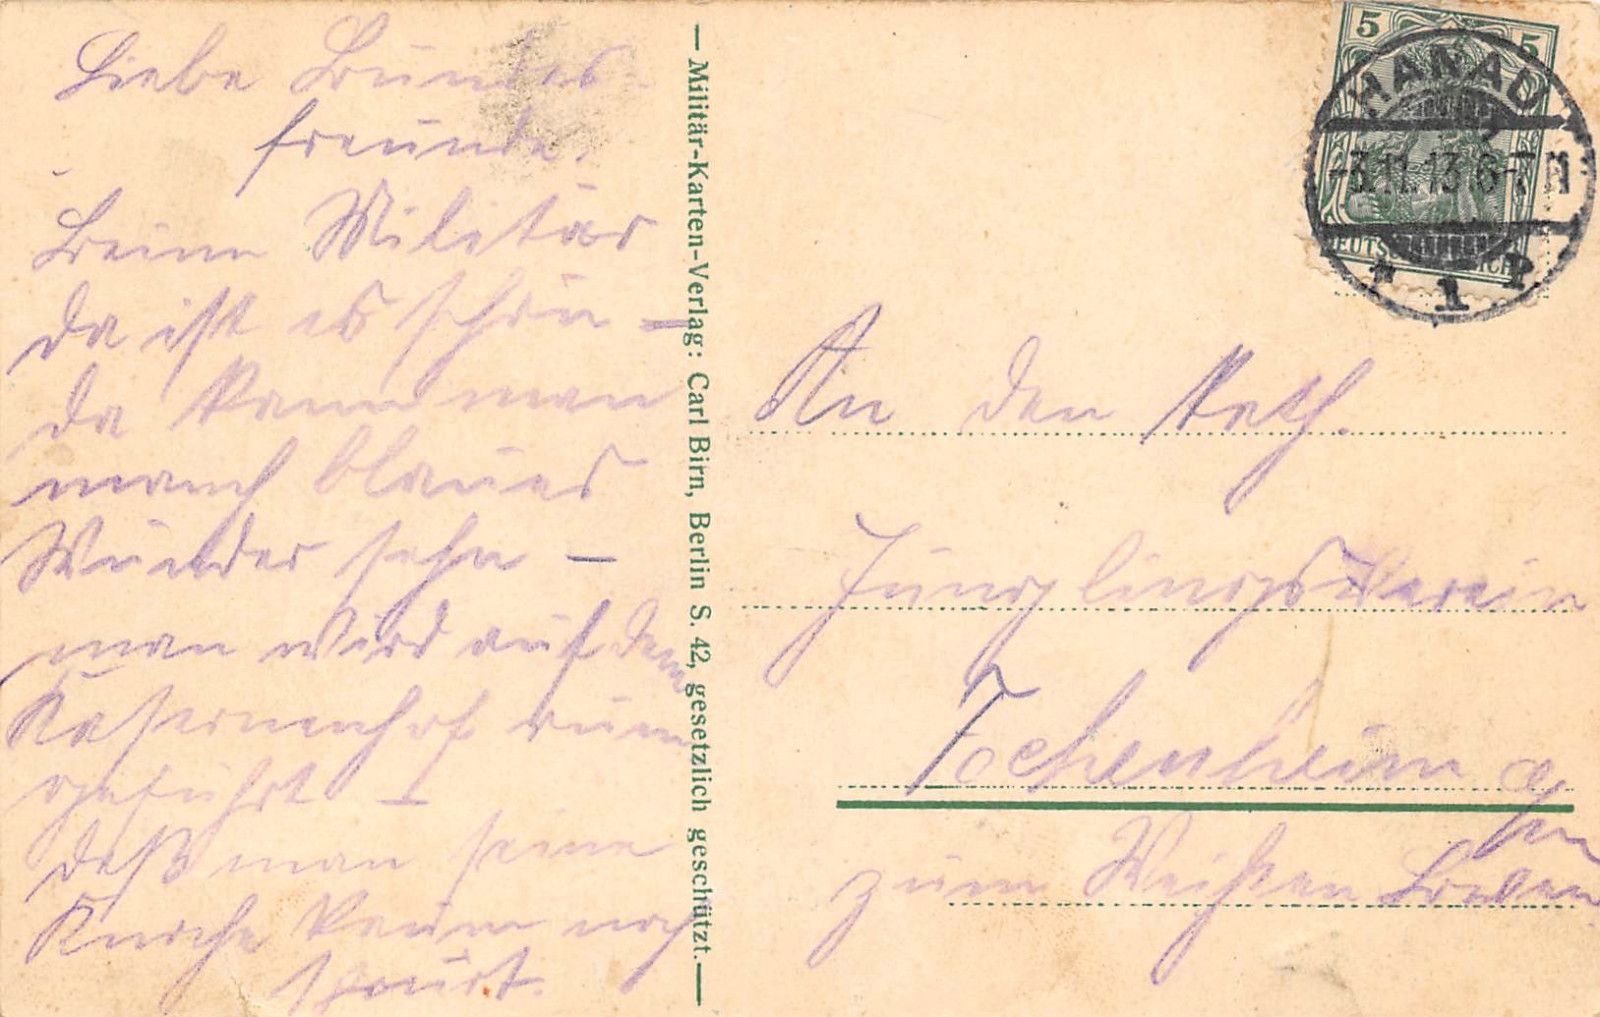 Liebe Bundes-
freunde.
Beim Militär
da ist es schön –
da kann man
manch blaues
Wunder sehn –
man wird auf dem
Kasernenhof rum
geführt –
daß man seine
Knoche kaum noch
spürt.
— Militär-Karten-Verlag: Carl Birn, Berlin S. 42, gesetzlich geschützt. —
5 5
DEUTSCHES REICH
HANAU
-3.11.13. 6-7 N
* 1 P
An den
Jünglingsverein
Fechenheim a/
zum Weißen